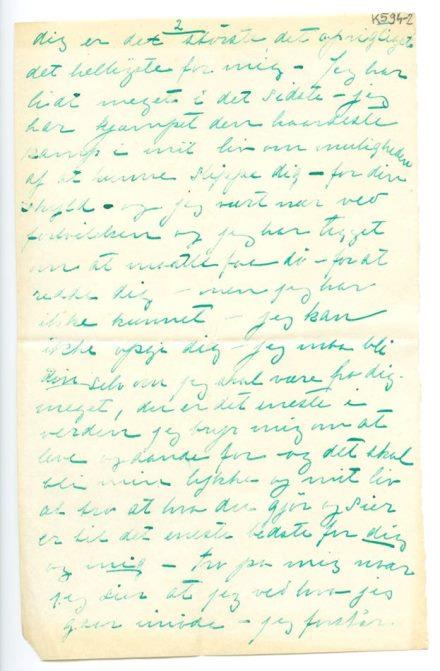 K594-2
2
dig er det största det oprigtigste
det helligste for mig – Jeg har
lidt meget i det sidste – jeg
har kjæmpet den haardeste
kamp i mit liv om muligheden
af at kunne slippe dig – for din
skyld – og jeg vært nær ved
fortvilelsen og jeg har tigget
om at maatte faa dö – for at
redde dig – men jeg har
ikke kunnet – jeg kan
ikke opgi dig – jeg maa bli
din selv om jeg skal være fra dig
meget, du er det eneste i
verden jeg bryr mig om at
leve og aande for – og det skal
bli min lykke og mit liv
at tro at hva du gjör og sier
er til det eneste bedste for dig
og mig – tro på mig naar
jeg sier at jeg ved hva jeg
gaar imöde – jeg forstår